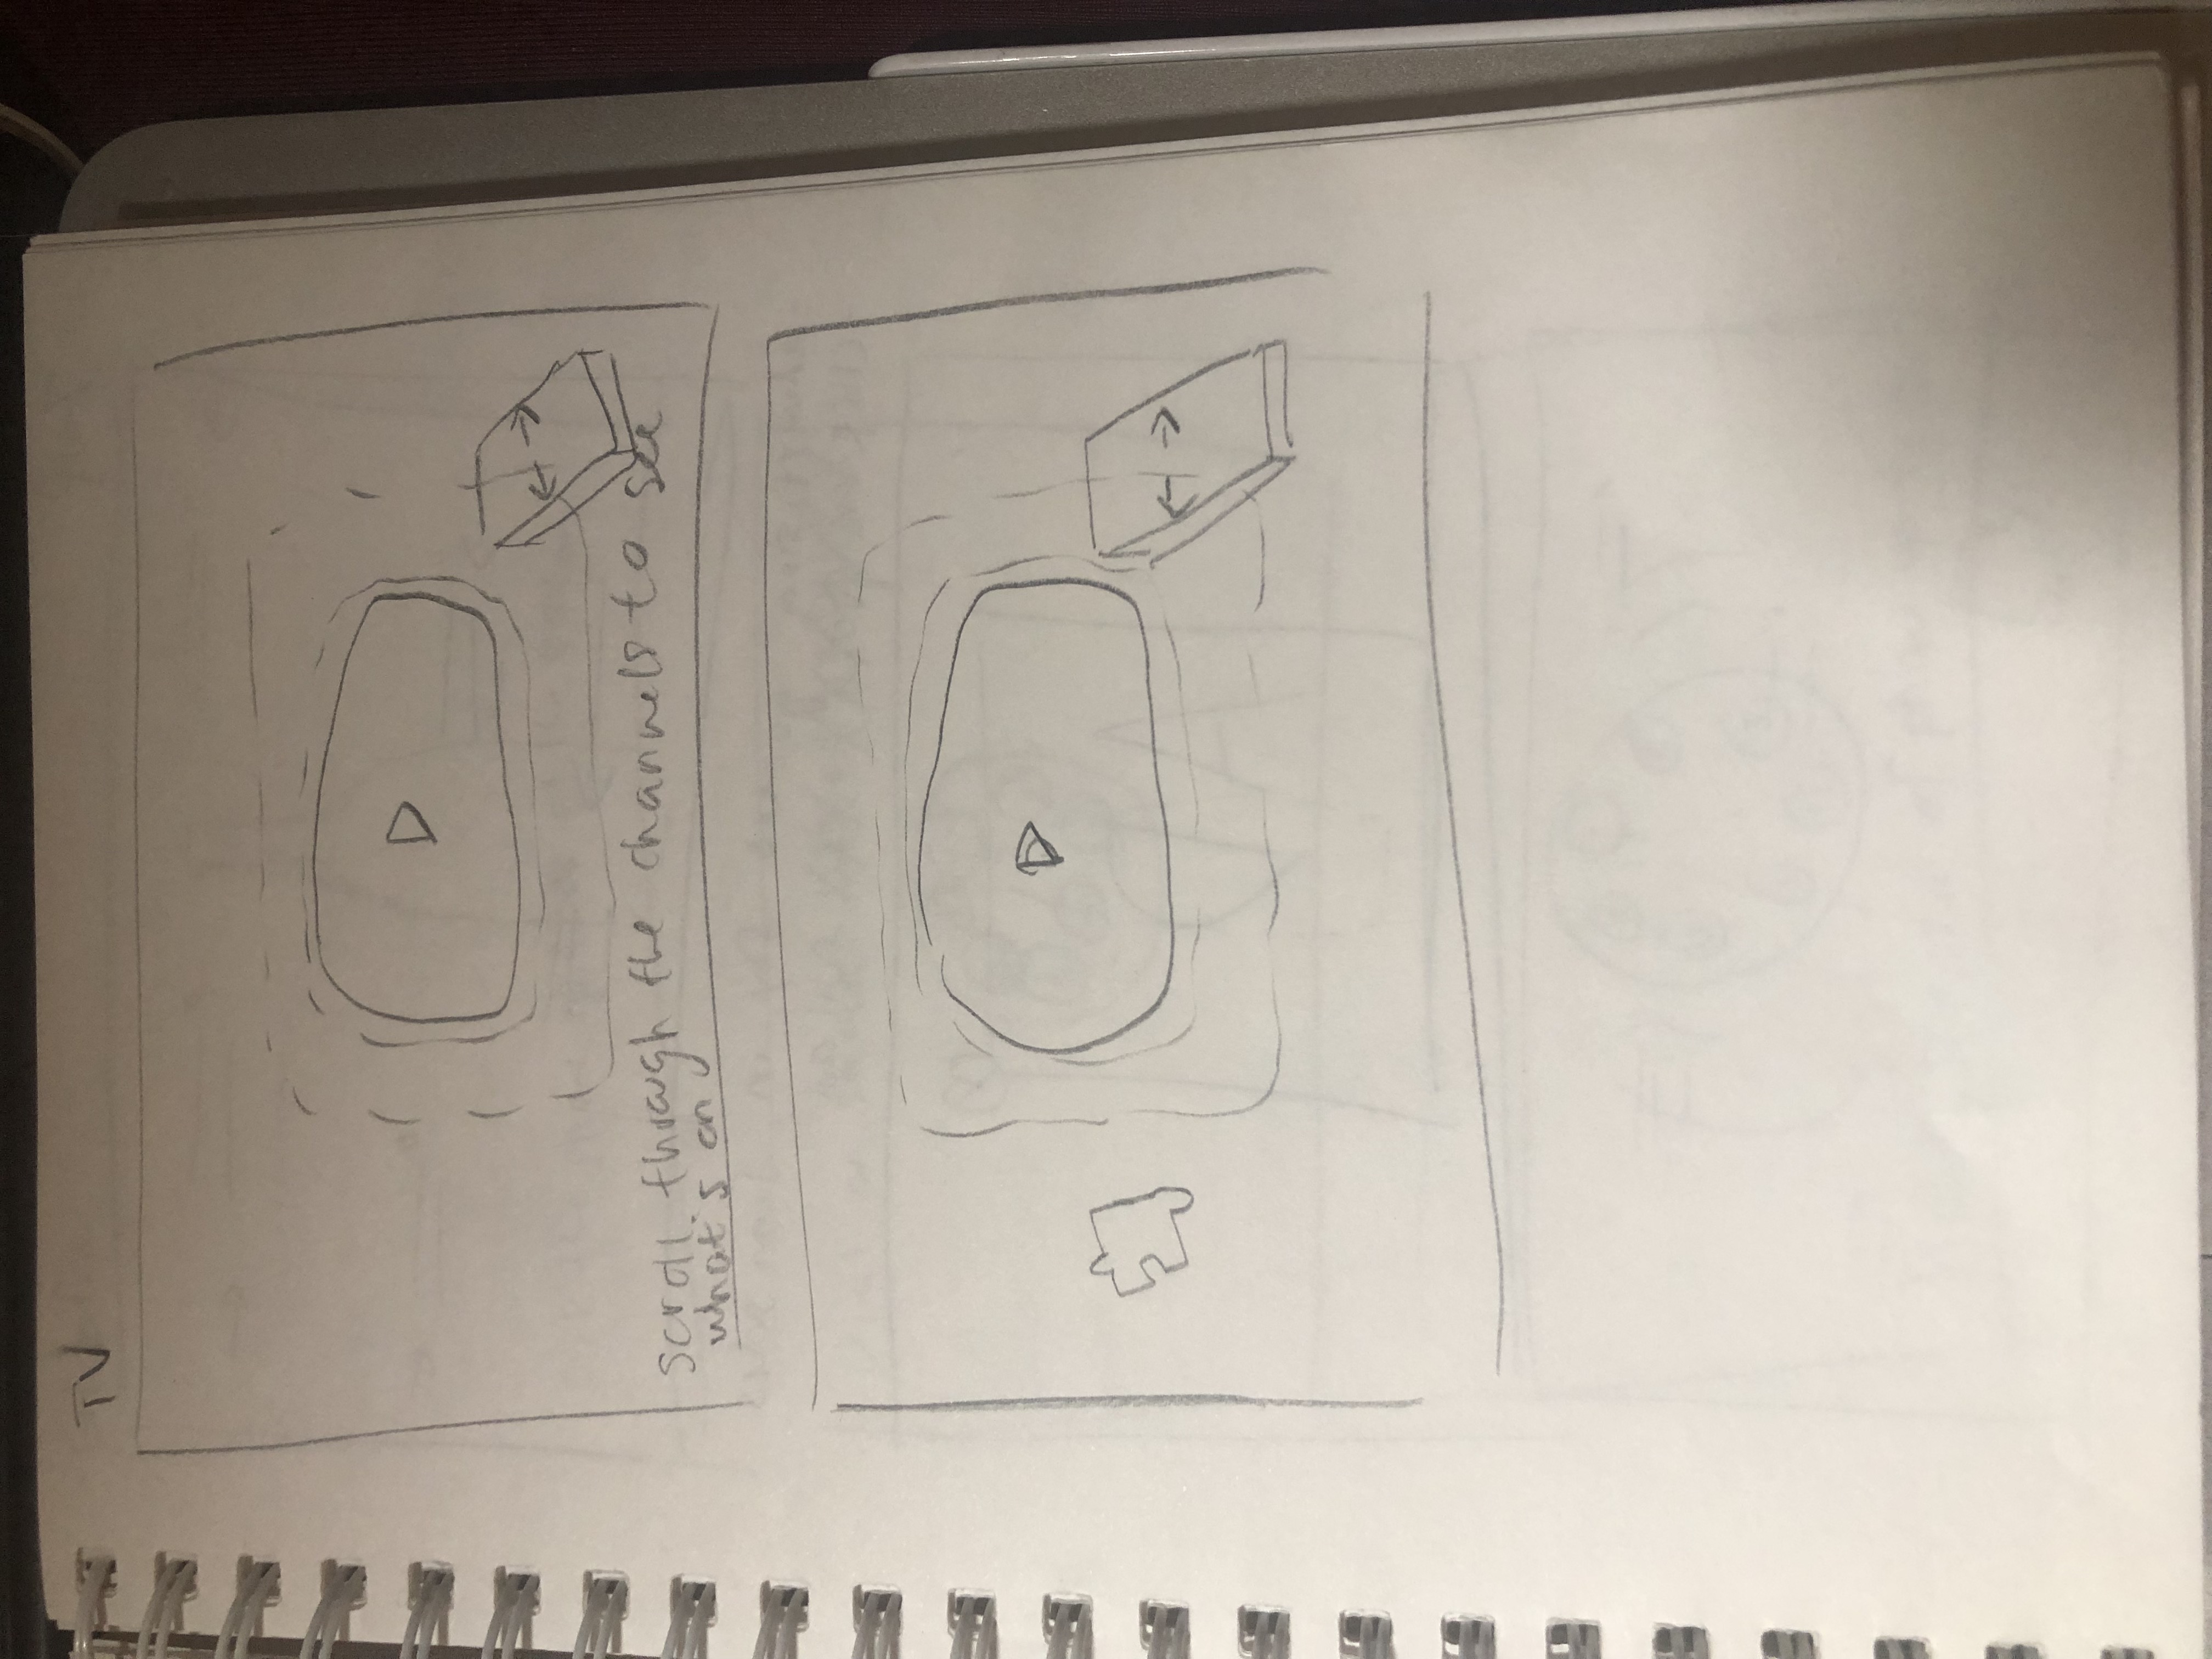 TV
scroll through the channels to see
what's on